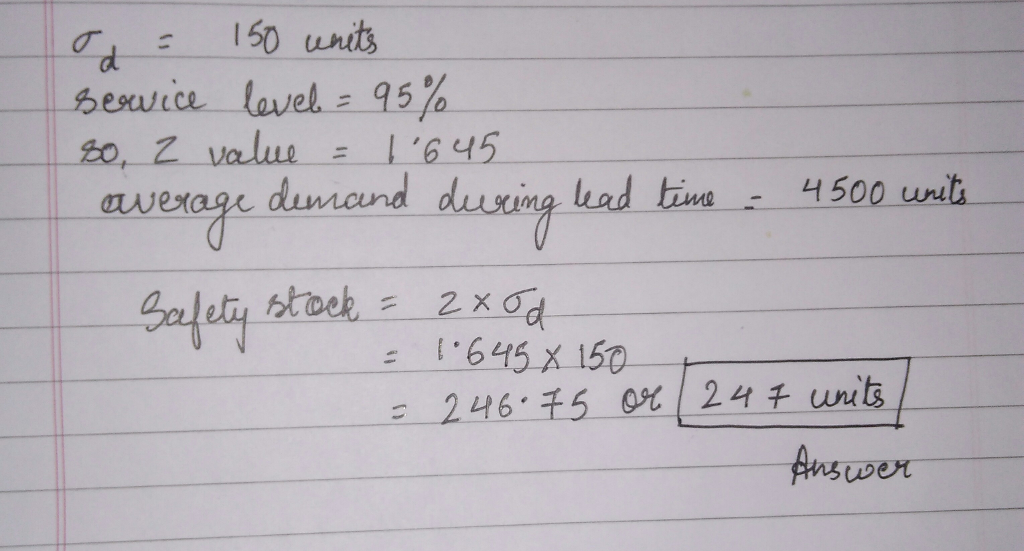 σd = 150 units
service level = 95%
so, Z value = 1.645
average demand during lead time = 4500 units
Safety stock = Z x σd
= 1.645 x 150
= 246.75 or 247 units
Answer